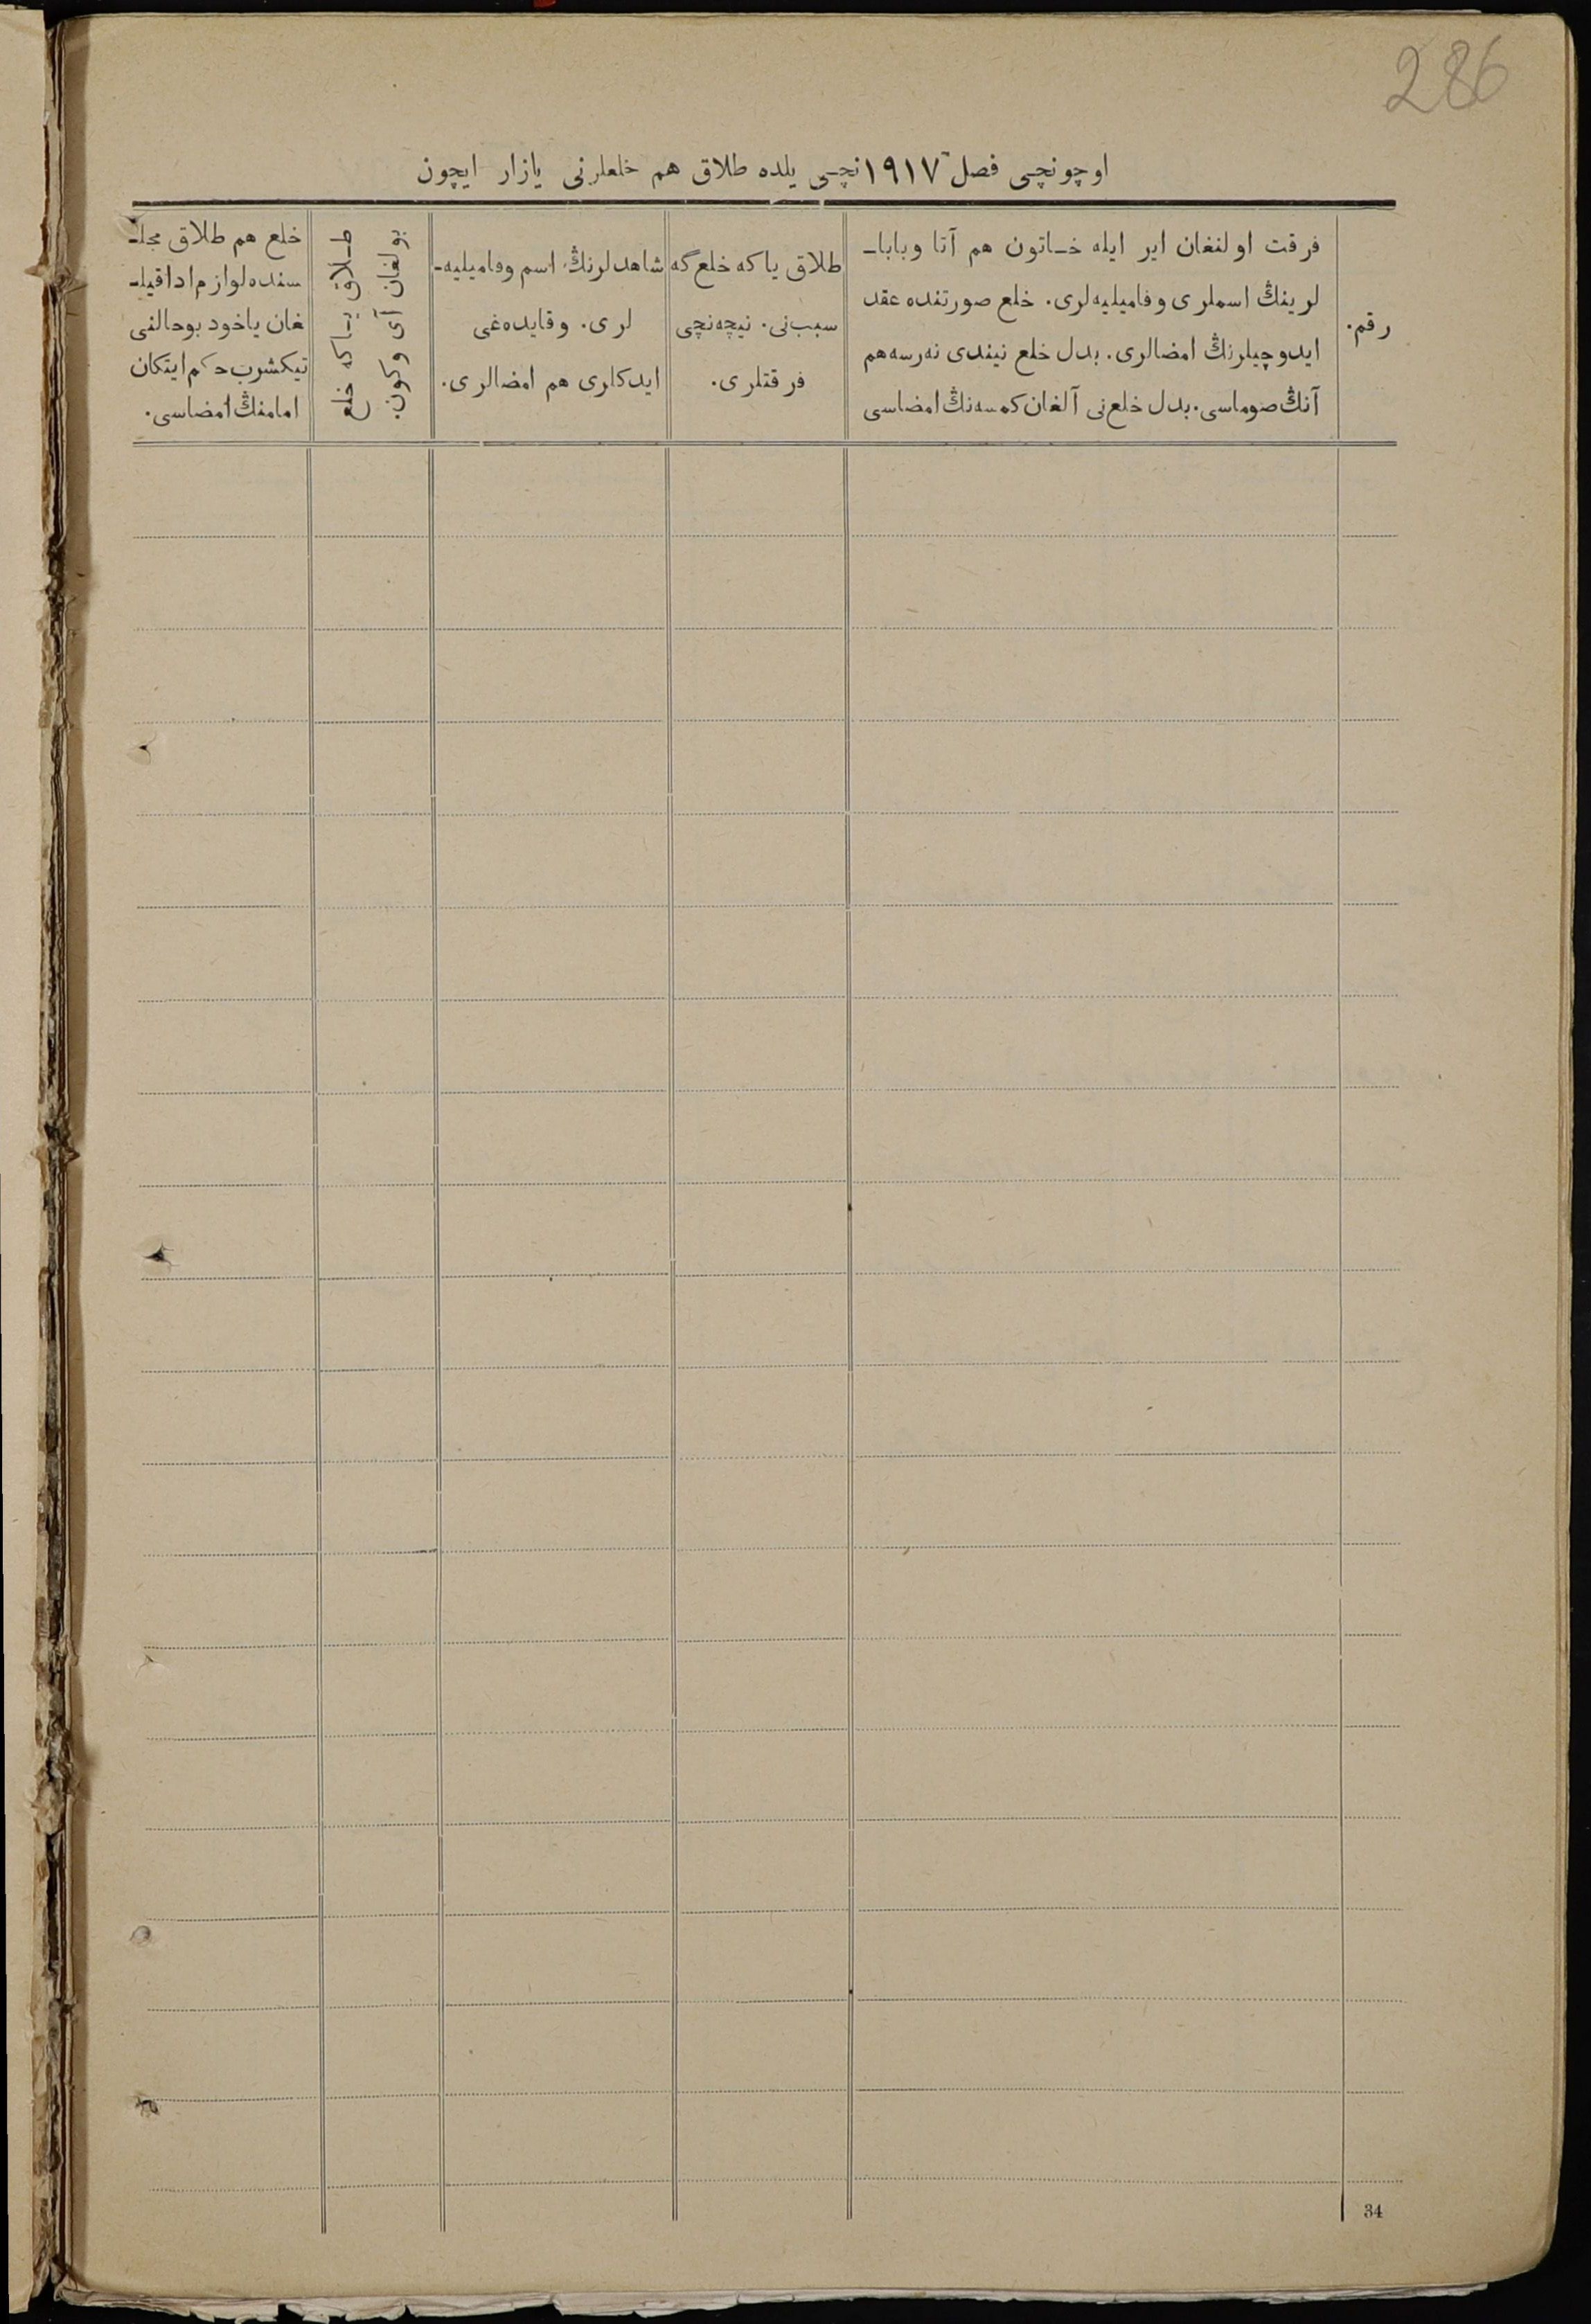 286
اوچونچی فصل ١٩١٧ نچی یلده طلاق هم خلعلرنی یازار ایچون
رقم.
فرقت اولنغان ایر ایله خاتون هم آتا وبابا‍ـ
لرینڭ اسملری وفامیلیه‌لری. خلع صورتنده عقد
ایدوچیلرنڭ امضالری. بدل خلع نیندی نه‌رسه هم
آنڭ صوماسی. بدل خلع‌نی آلغان کمسه‌نڭ امضاسی
طلاق یاکه خلع‌گه
سبب‌نی. نیچه‌نچی
فرقتلری.
شاهدلرنڭ اسم وفامیلیه‌ـ
لری. وقایده‌غی
ایدکلری هم امضالری.
طلاق یاکه خلع
بولغان آی وکون.
خلع هم طلاق مجلـ
سنده لوازم ادا قیلـ
غان یاخود بوحالنی
تیکشرب حکم ایتکان
امامنڭ امضاسی.
34